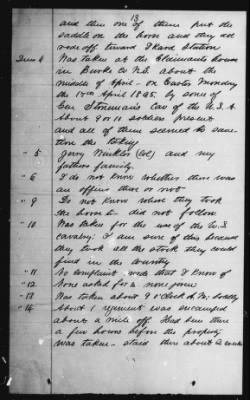 13
and then one of them put the
saddle on the horse and they all
rode off toward Icard Station
Ques 4 Was taken at the Claimants house
in Burke Co N.C. about the
middle of April - on Easter Monday
the 17th April 1865. by some of
Gen Stoneman's Cav of the U.S.A
About 9 or 11 soldiers present
and all of them seemed to sanc
tion the taking
" 5 Jerry Winkler (Col) and my
fathers family
" 6 I do not know whether there was
an officer there or not
" 9 Do not know where they took
the horse to - did not follow
" 10 Was taken for the use of the U.S
Cavalry: I am sure of this because
they took all the stock they could
find in the county
" 11 No complaint made that I know of
" 12 None asked for & none given
" 13 Was taken about 9 o'clock A.M.
" 14 About 1 regiment was encamped
about a mile off. Had been there
a few hours before the property
was taken - staid there about